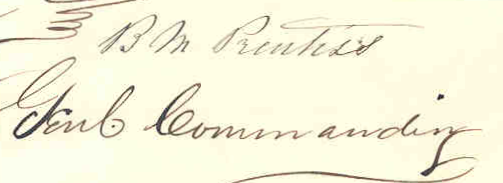 B M Prentiss
Genl. Commanding